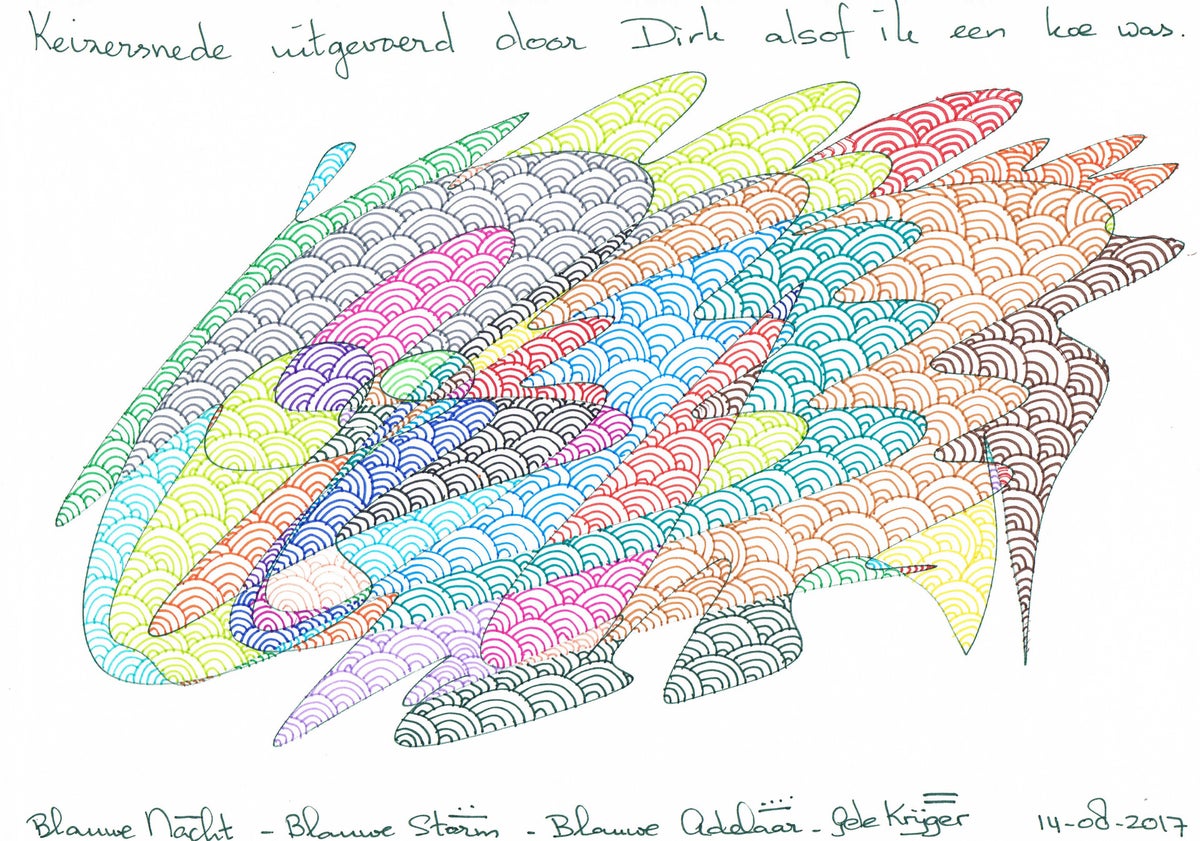 Keizersnede uitgevoerd door Dirk alsof ik een koe was.
Blauwe Nacht - Blauwe Storm - Blauwe Adelaar - Gele Krijger 14-08-2017